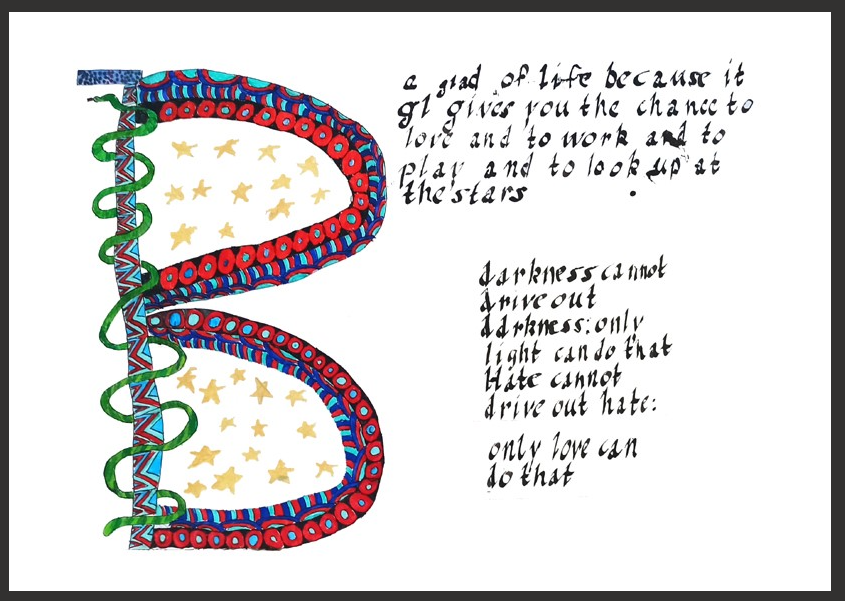 Be glad of life because it
gives you the chance to
love and to work and to
play and to look up at
the stars.
darkness cannot
drive out
darkness: only
light can do that
Hate cannot
drive out hate:
only love can
do that